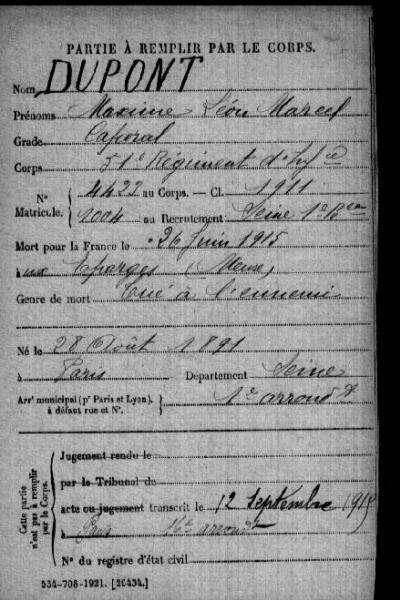 PARTIE À REMPLIR PAR LE CORPS.
Nom DUPONT
Prénoms Maxime Léon Marcel
Grade Caporal
Corps 51e Régiment d'Infie
N° Matricule. { 4422 au Corps. — Cl. 1911
1004 au Recrutement Seine 1er Bau
Mort pour la France le 26 Juin 1915
à ux Eparges (Meuse)
Genre de mort Tué à l'ennemi
Né le 28 Août 1891
à Paris Département Seine
Arrt municipal (pr Paris et Lyon), à défaut rue et N°. } 1er arrondt
Cette partie n'est pas à remplir par le Corps.
Jugement rendu le
par le Tribunal de
acte ou jugement transcrit le 12 Septembre 1915
à Paris 16e arrondt
N° du registre d'état civil
534-708-1921. [26434.]